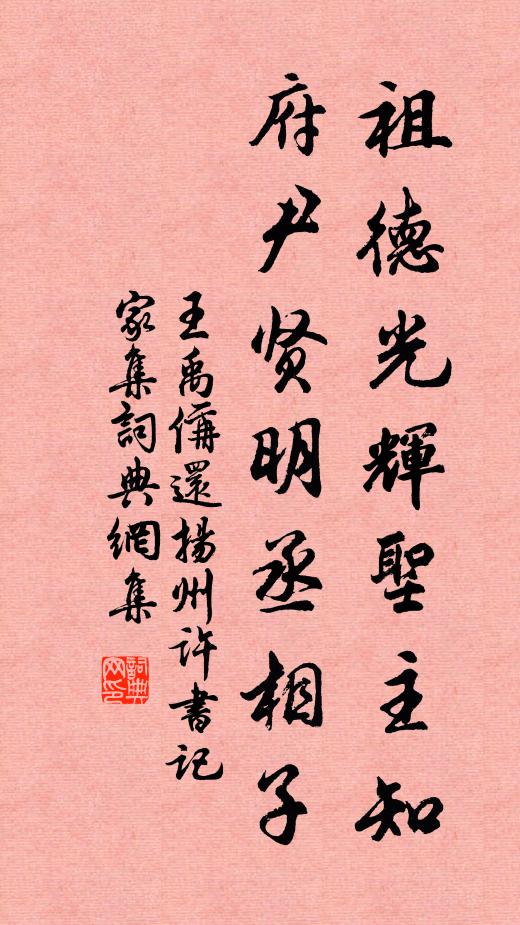 祖德光輝聖主知
府尹贤明丞相子
王禹偁還揚州許書記
家集詞典網集
詞典網印